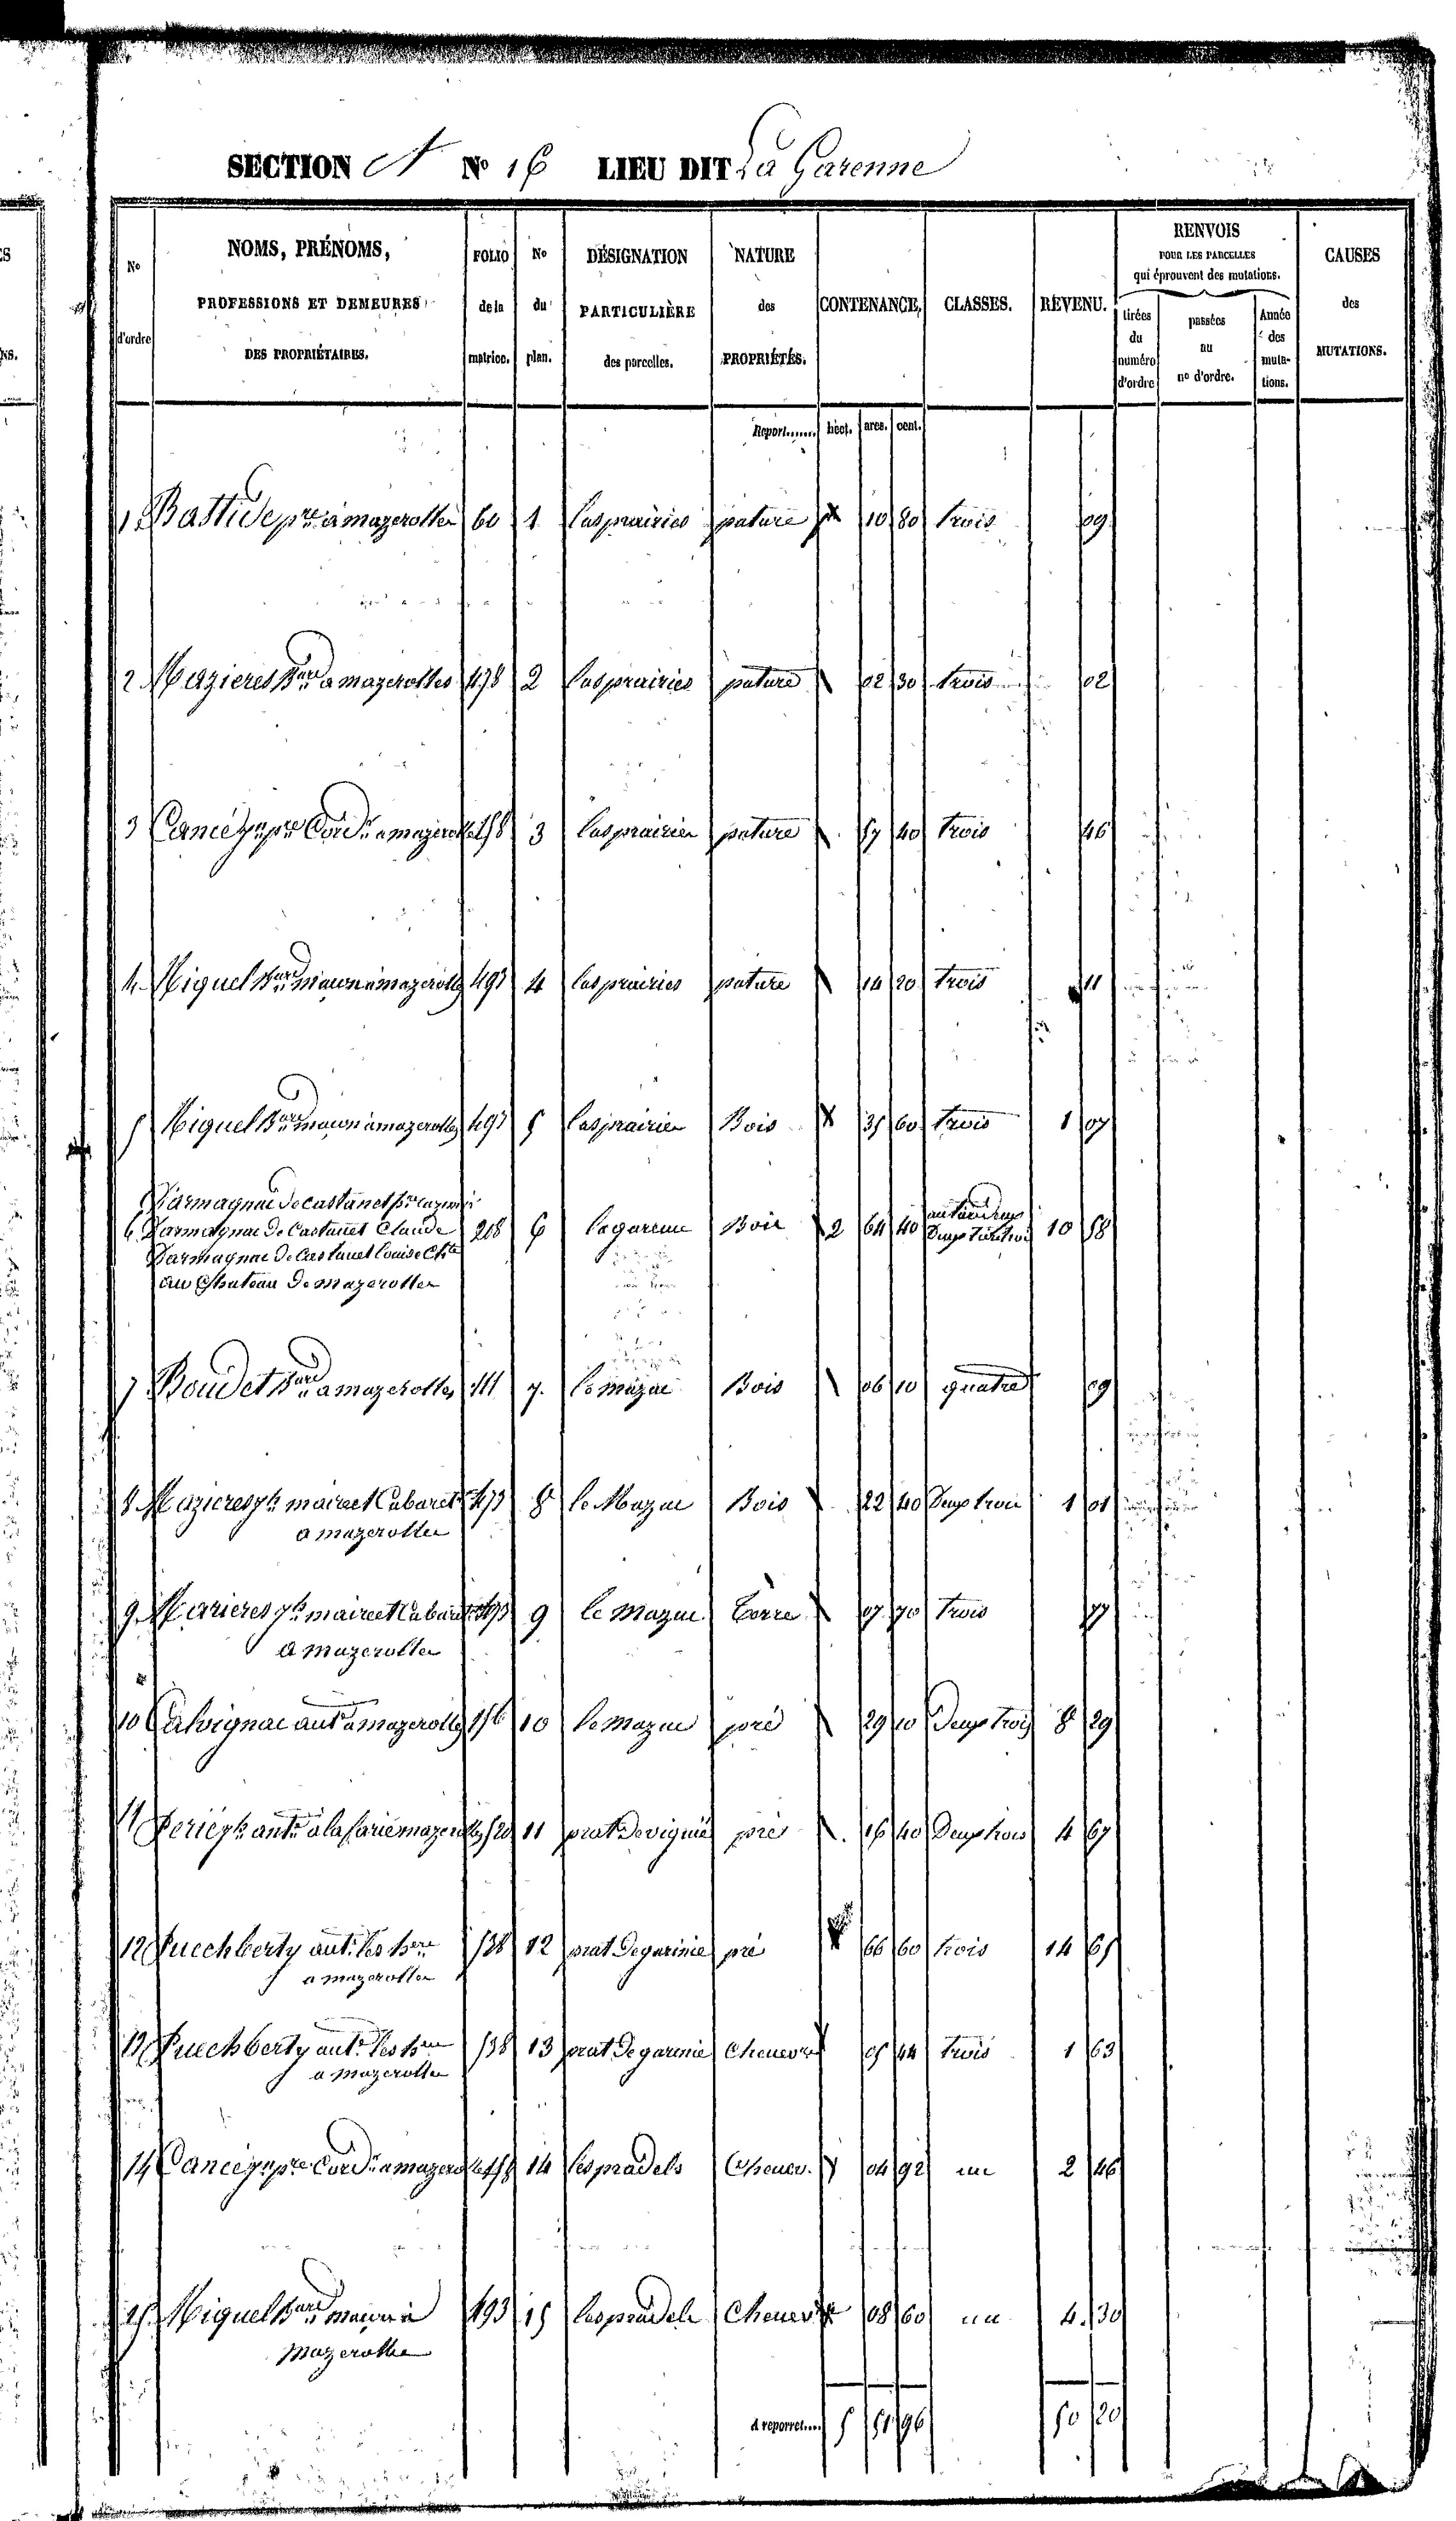 SECTION A N° 16 LIEU DIT La Garenne
N° d'ordre
NOMS, PRÉNOMS, PROFESSIONS ET DEMEURES DES PROPRIÉTAIRES.
FOLIO de la matrice.
N° du plan.
DÉSIGNATION PARTICULIÈRE des parcelles.
NATURE des PROPRIÉTÉS.
CONTENANCE,
CLASSES.
REVENU.
RENVOIS POUR LES PARCELLES qui éprouvent des mutations.
tirées du numéro d'ordre
passées au n° d'ordre.
Année des mutations.
CAUSES des MUTATIONS.
Report....... hect. ares. cent.
1 Bastide pre à mazerolles 60 1 las prairies pature 10 80 trois 09
2 Mazieres Bard a mazerolles 478 2 las prairies pature 02 30 trois 02
3 Cancé pre Cord a mazerolles 158 3 las prairies pature 57 40 trois 46
4 Miquel Bard maçon à mazerolles 493 4 las prairies pature 14 20 trois 11
5 Miquel Bard maçon à mazerolles 493 5 las prairies Bois 35 60 trois 1 07
Darmagnac de Castanet
6 Darmagnac de Castanet Claude 208 6 la garenne Bois 2 64 40 10 58
Darmagnac de Castanet Louise
au Chateau de mazerolles
7 Boudet Bard a mazerolles 111 7 le mazuc Bois 06 10 quatre 09
8 Mazieres jh maire et Cabaret 473 8 le Mazuc Bois 22 40 Deux trois 1 01
a mazerolles
9 Mazieres jh maire et Cabaret 473 9 le mazuc terre 07 70 trois 77
a mazerolles
10 Calvignac ante a mazerolles 156 10 le mazuc pré 29 10 Deux trois 8 29
11 Perié jh ante à mazerolles 520 11 prat de vignié pré 16 40 Deux trois 4 67
12 Puechberty ante les hers 538 12 prat de garinie pré 66 60 trois 14 65
a mazerolles
13 Puechberty ante les hers 538 13 prat de garinie Chenevre 05 44 trois 1 63
a mazerolles
14 Cancé pre Cord a mazerolles 158 14 les pradels Chenev. 04 92 un 2 46
15 Miquel Bard maçon à 493 15 les pradels Chenev 08 60 un 4 30
mazerolles
A reporter.... 5 51 96 50 20